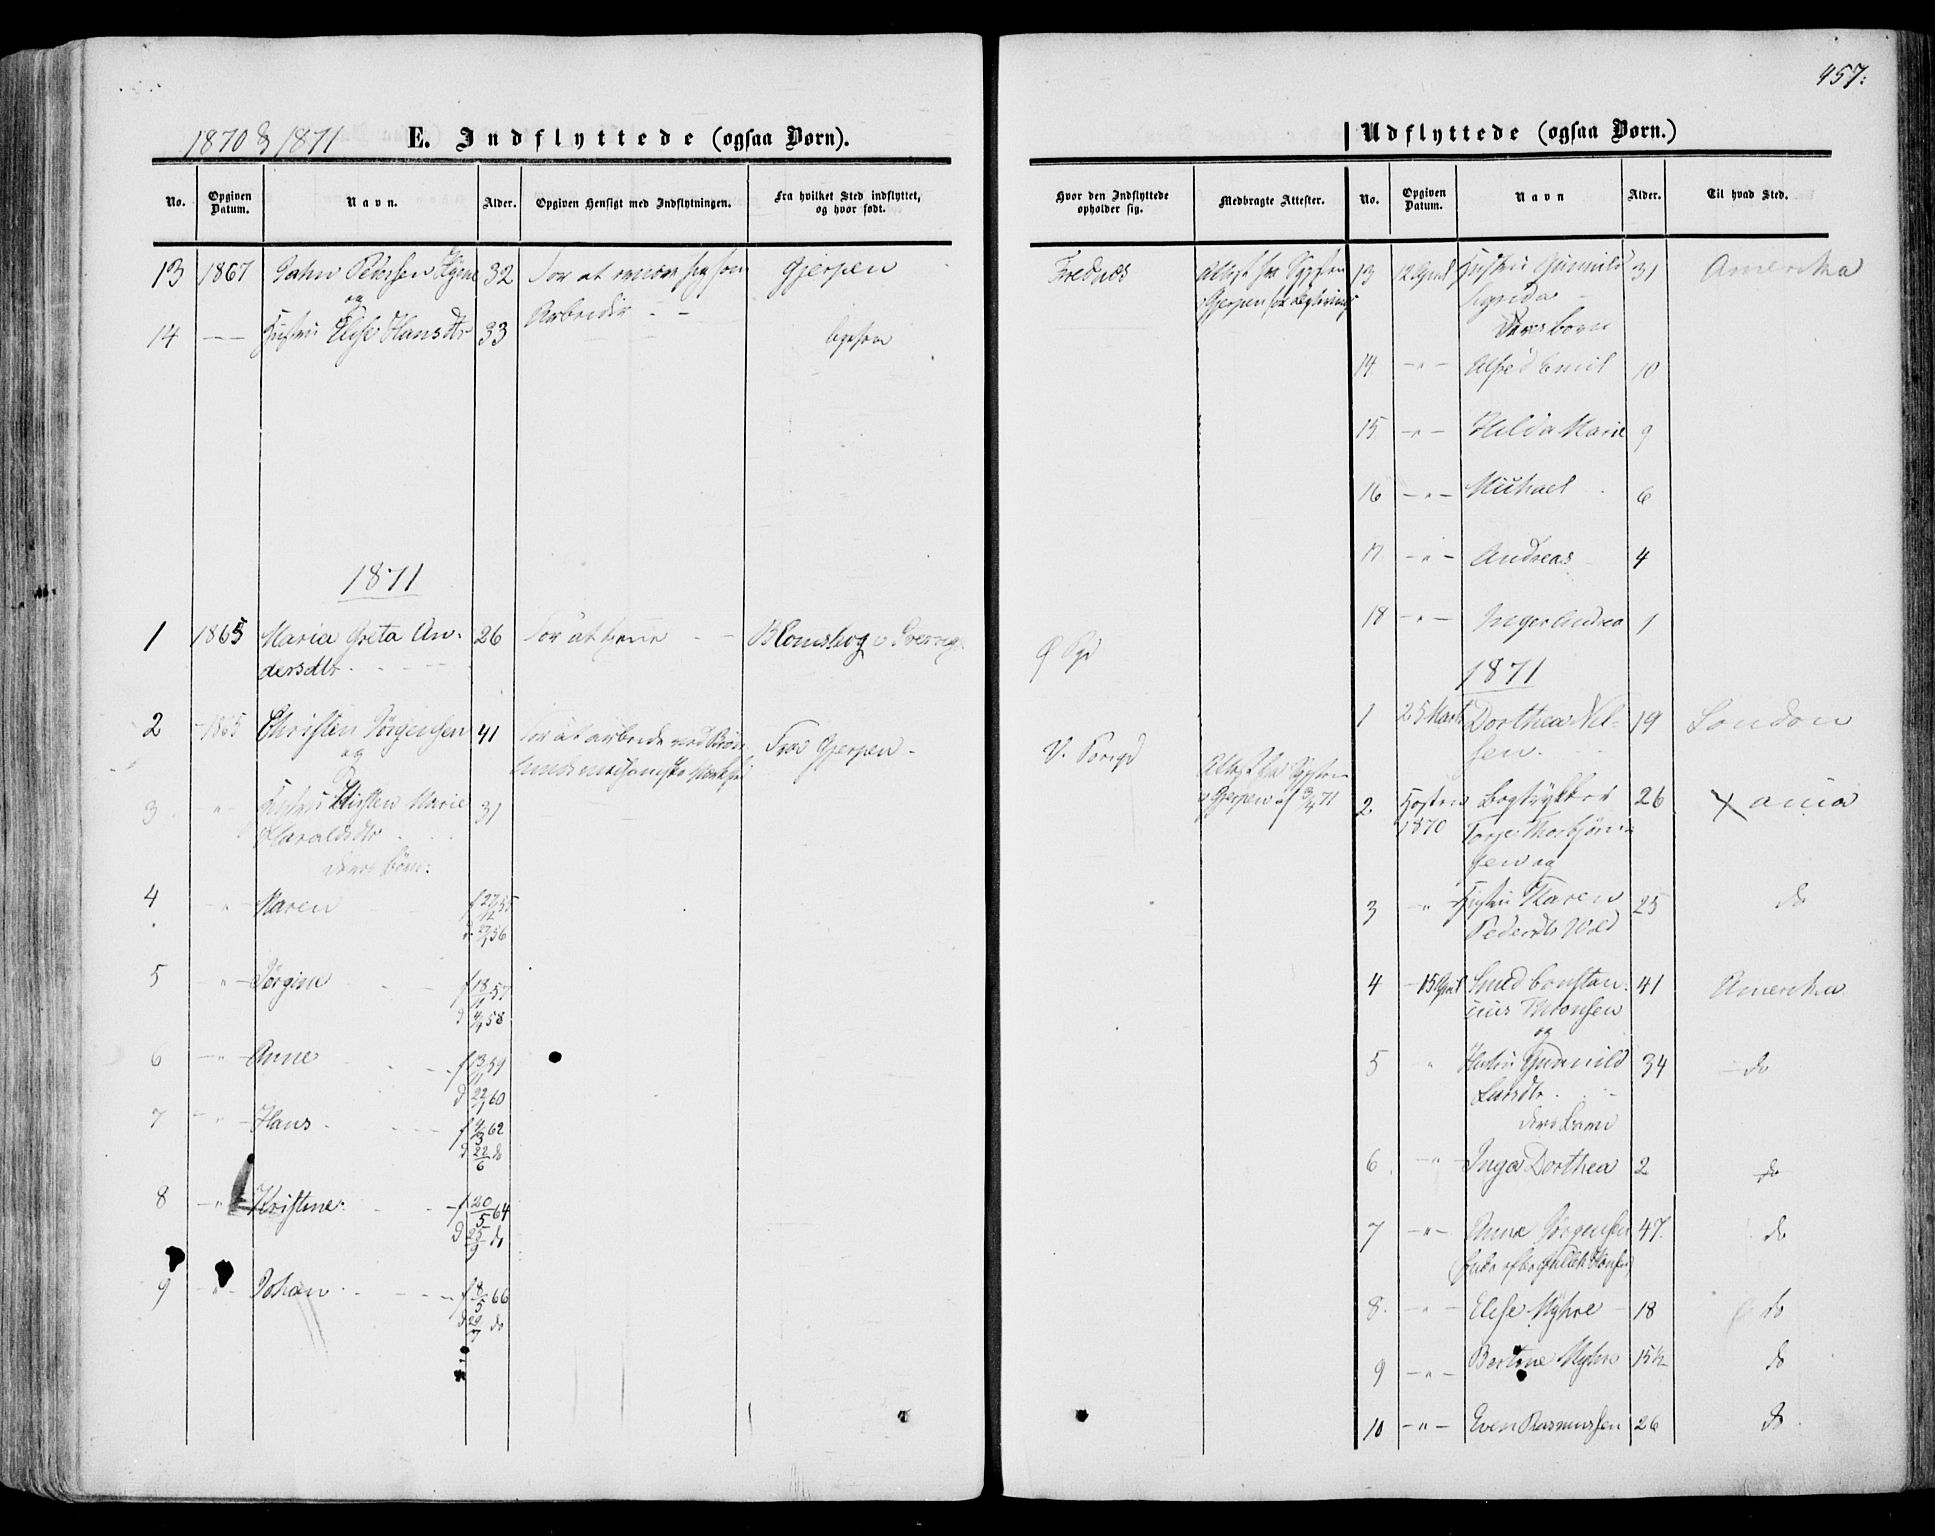 457.
1870 & 1871
E. Indflyttede (ogsaa Børn).
No. Opgiven Datum. Navn. Alder. Opgiven Hensigt med Indflytningen. Fra hvilket Sted indflyttet, og hvor født.
13 1867 32 For at som Gjerpen
og
14 — — Hustru Else Hansdtr 33 Arbeider - - ligesom
1871
1 1865 Maria Greta An- 26 For at tjene Blomskog i Sverrig
dersdtr
2 - 1865 Christen Jørgensen 41 For at arbeide ved Fra Gjerpen -
og
3 " Hustru Kirsten Marie 31
Haraldsdtr
deres børn:
4 " Maren f 27/12 55
d 27/1 56
5 " Jørgine f 18/11 57
d 4/1 58
6 — " — Anne f 13/11 59
d 22/1 60
7 — " — Hans f 4/3 62
d 22/6 do
8 — " — Kristine f 20/5 64
d 25/9 do
9 — " — Johan f 8/5 66
d 29/7 do
Udflyttede (ogsaa Børn.)
Hvor den Indflyttede opholder sig. Medbragte Attester. No. Opgiven Datum. Navn Alder. Til hvad Sted.
Frednes Attest fra Sgpsten 13 12 April Hustru Gunnild 31 Amerika
i Gjerpen for
Deres børn
14 — " — Alfred Emil 10
15 — " — Hilda Marie 9
16 — " — Michael 6
17 — " — Andreas 4
18 — " — Inger Andrea 1
1871
1 25 Marts Dorthea Niel- 19 London
sen
V. Porsgd Attest fra Sgpsten
i Gjerpen af 3/4 71
2 Høsten 1870 Bogtrykker 26 Xania
Torje Thorbjørn-
sen og
3 " Hustru Karen 25 do
Pedersdtr Wold
4 - 15 April Smed Constan- 41 Amerika
tius Thronsen
og
5 " Hustru Gunnild 34 — do
Larsdtr
deres børn
6 — " — Inga Dorthea 2 do
7 — " — Anne Jørgensen 47 do
8 — " — Elise Myhre 18 do
9 — " — Bertine Myhre 15½ do
10 — " — Even Rasmussen 26 do